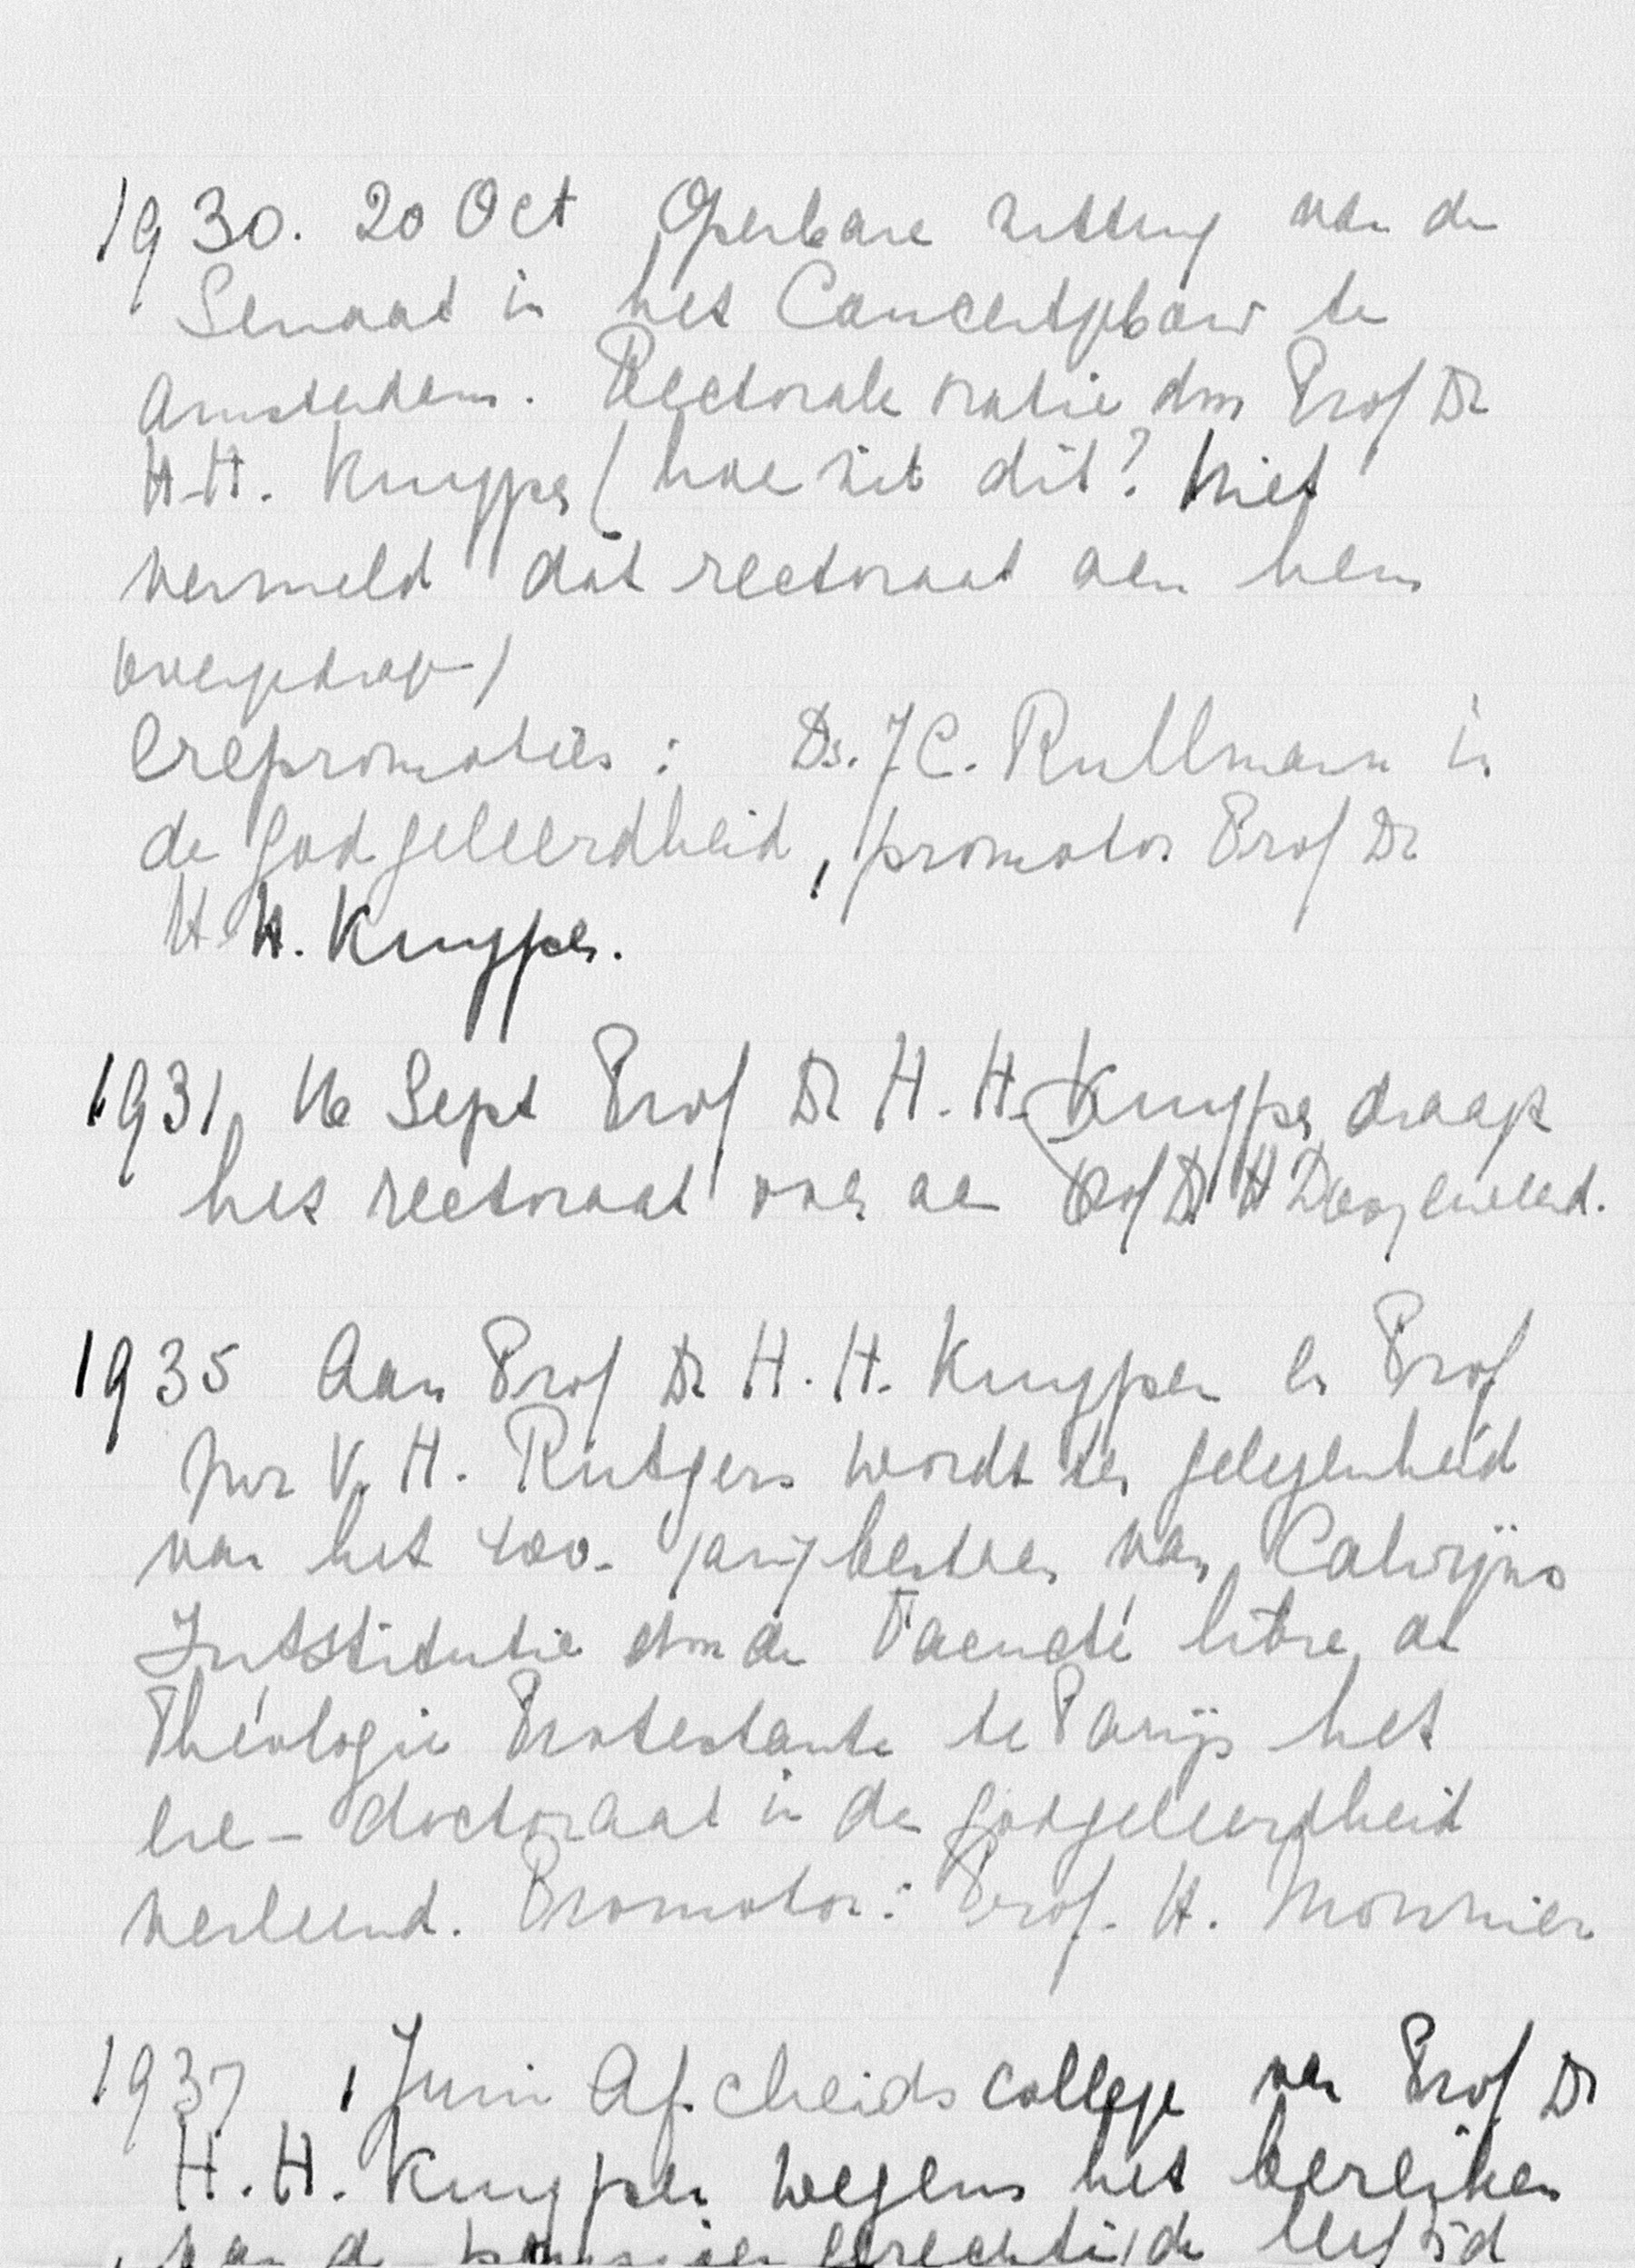 1930. 20 Oct Openbare zitting van de
Senaat in het Concertgebouw te
Amsterdam. Rectorale oratie door Prof Dr
H.H. Kuyper (hoe zit dit? Niet
vermeld dat rectoraat aan hem
overgedrag)
Erepromoties: Ds. J C. Rullmann in
de godgeleerdheid, promotor Prof Dr
H. H. Kuyper.
1931, 16 Sept Prof Dr H. H. Kuyper draagt
het rectoraat over aan Prof Dr H Dooyeweerd.
1935 Aan Prof Dr H. H. Kuyper en Prof
Mr V. H. Rutgers wordt ter gelegenheid
van het 400-jarig bestaan van Calvijns
Institutie door de Faculté libre de
Théologie Protestante te Parijs het
ere-doctoraat in de godgeleerdheid
verleend. Promotor: Prof. H. Monnier
1937 1 Juni Afscheidscollege van Prof Dr
H. H. Kuyper wegens het bereiken
van de pensioengerechtigde leeftijd